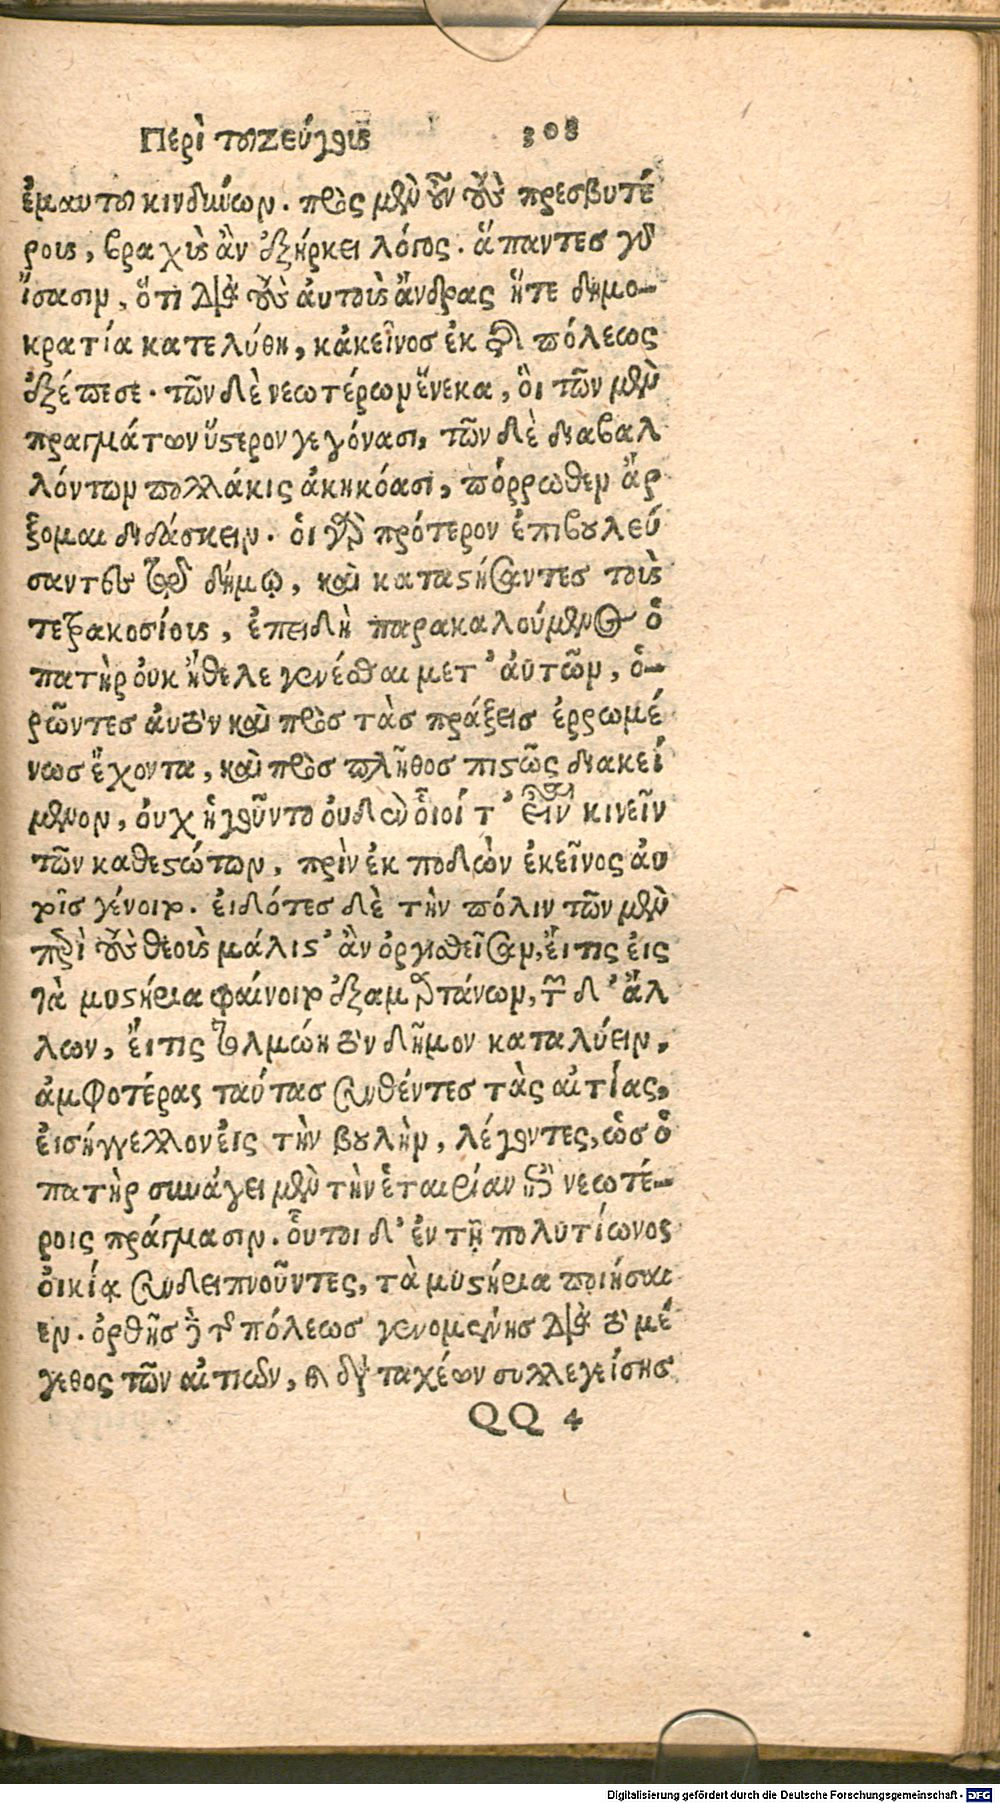 Περὶ τοῦ Ζεύγους 308
ἐμαυτοῦ κινδύνων. πρὸς μὲν οὖν τοὺς πρεσβυτέ
ρους, βραχὺς ἂν ἐξήρκει λόγος. ἅπαντες γὰρ
ἴσασιν, ὅτι διὰ τοὺς αὐτοὺς ἄνδρας ἥτε δημο-
κρατία κατελύθη, κἀκεῖνος ἐκ τῆς πόλεως
ἐξέπεσε. τῶν δὲ νεωτέρων ἕνεκα, οἳ τῶν μὲν
πραγμάτων ὕστερον γεγόνασι, τῶν δὲ διαβαλ
λόντων πολλάκις ἀκηκόασι, πόρρωθεν ἄρ
ξομαι διδάσκειν. οἱ γὰρ πρότερον ἐπιβουλεύ
σαντες τῷ δήμῳ, καὶ καταστήσαντες τοὺς
τετρακοσίους, ἐπειδὴ παρακαλούμενος ὁ
πατὴρ οὐκ ἤθελε γενέσθαι μετ’ αὐτῶν, ὁ-
ρῶντες αὐτὸν καὶ πρὸς τὰς πράξεις ἐρρωμέ
νως ἔχοντα, καὶ πρὸς πλῆθος πιστῶς διακεί
μενον, οὐχ ἡγοῦντο οὐδὲν οἷοί τ’ εἶναι κινεῖν
τῶν καθεστώτων, πρὶν ἐκ ποδὼν ἐκεῖνος αὐ
τοῖς γένοιτο. εἰδότες δὲ τὴν πόλιν τῶν μὲν
περὶ τοὺς θεοὺς μάλιστ’ ἂν ὀργισθεῖσαν, εἴ τις εἰς
τὰ μυστήρια φαίνοιτο ἐξαμαρτάνων, τῶν δ’ ἄλ
λων, εἴ τις τολμῴη τὸν δῆμον καταλύειν,
ἀμφοτέρας ταύτας συνθέντες τὰς αἰτίας,
εἰσήγγελλον εἰς τὴν βουλὴν, λέγοντες, ὡς ὁ
πατὴρ συνάγει μὲν τὴν ἑταιρίαν ἐπὶ νεωτέ-
ροις πράγμασιν. οὗτοι δ’ ἐν τῇ πολυτίωνος
οἰκίᾳ συνδειπνοῦντες, τὰ μυστήρια ποιήσαι
εν. ὀρθῆς δὲ τῆς πόλεως γενομένης διὰ τὸ μέ
γεθος τῶν αἰτιῶν, καὶ διὰ ταχέων συλλεγείσης
QQ 4
Digitalisierung gefördert durch die Deutsche Forschungsgemeinschaft - DFG